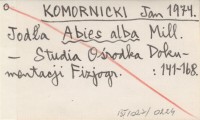 KOMORNICKI Jan 1974.
Jodła Abies alba Mill.
— Studia Ośrodka Doku-
mentacji Fizjogr. : 141-168.